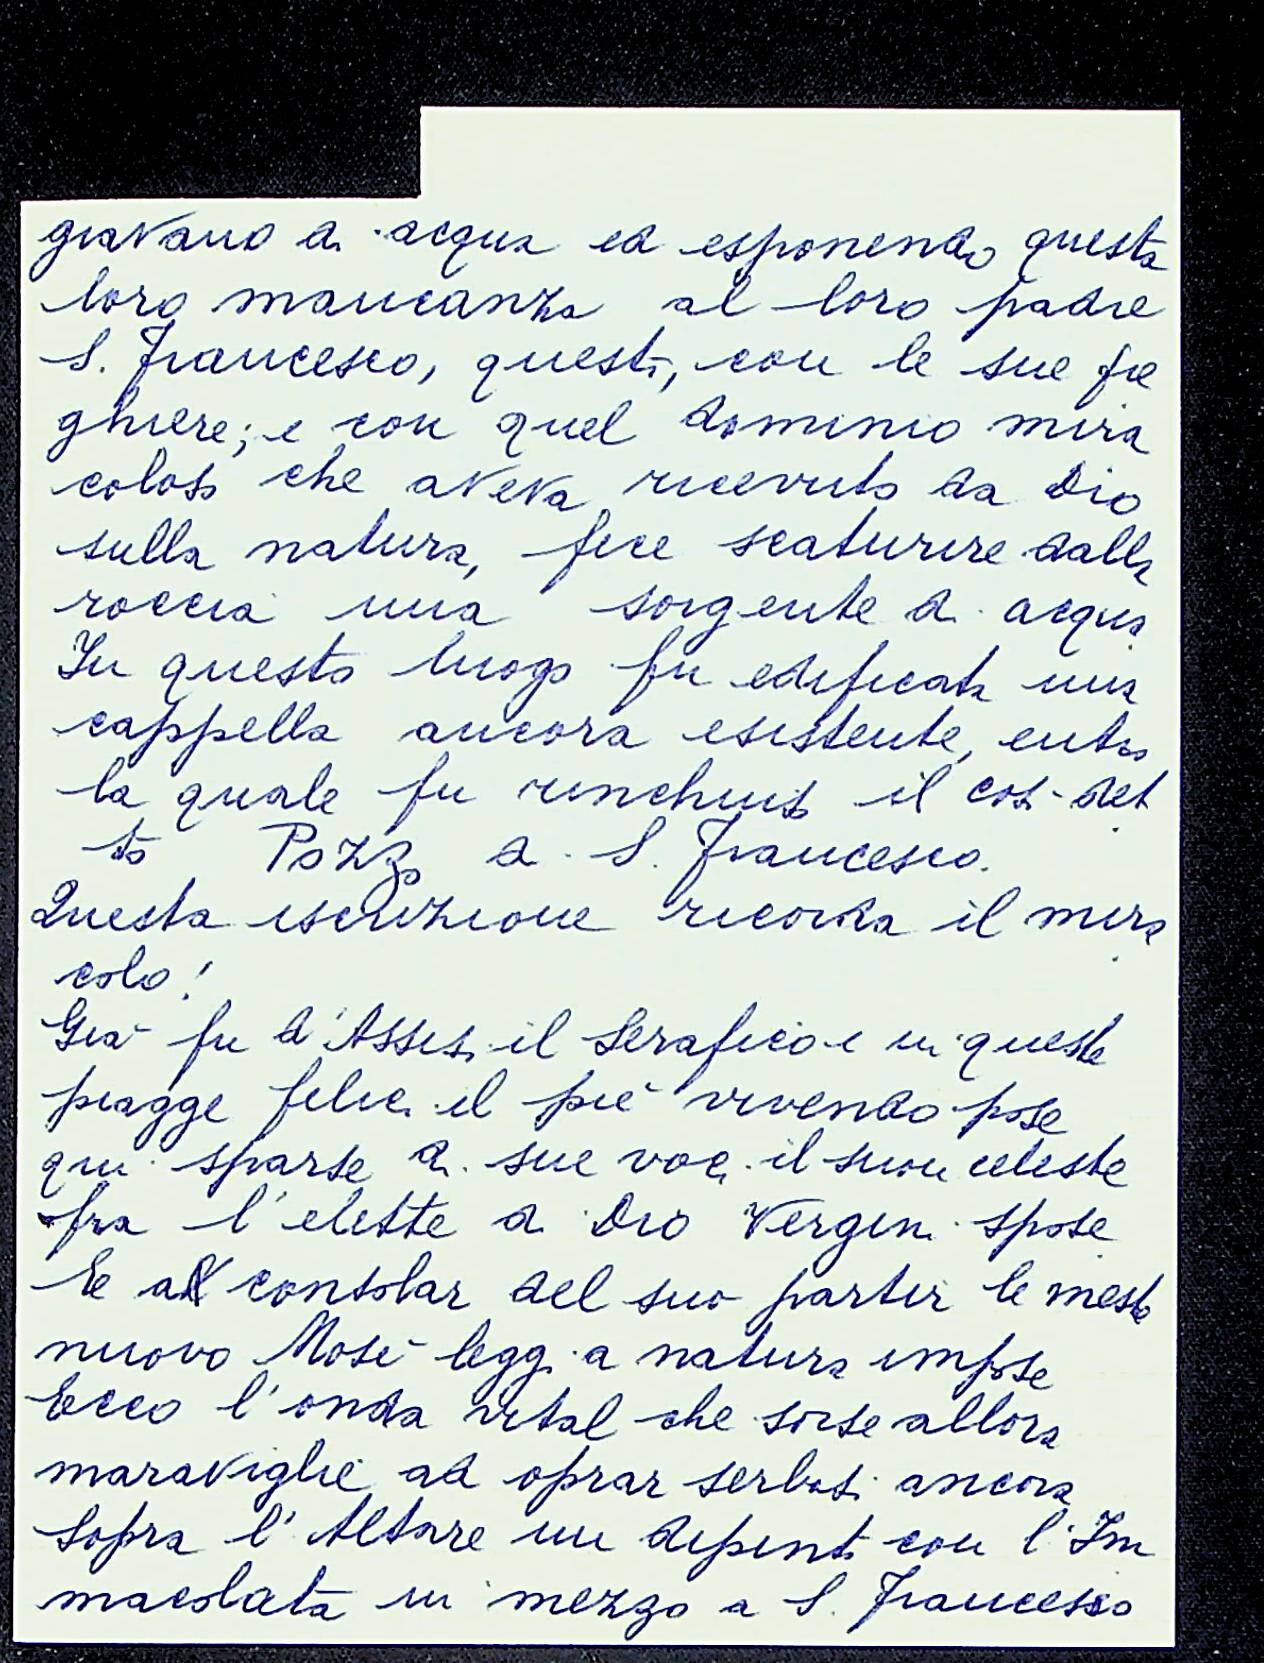 giavano di acqua ed esponendo questa
loro mancanza al loro padre
S. Francesco, questi, con le sue pre
ghiere; e con quel dominio mira
coloso che aveva ricevuto da Dio
sulla natura, fece scaturire dalla
roccia una sorgente di acqua
In questo luogo fu edificata una
cappella ancora esistente, entro
la quale fu rinchiuso il così-det
to Pozzo di S. Francesco.
Questa iscrizione ricorda il mira
colo!
Già fu d'Assisi il Serafico e in queste
piagge felici il piè vivendo pose
qui sparse di sue voci il suon celeste
fra l'elette a Dio Vergini spose
E a consolar del suo partir le meste
nuovo Mosè leggi a natura impose
Ecco l'onda vital che sorse allora
maraviglie ad oprar serbasi ancora
Sopra l'Altare un dipinto con l'Im
macolata in mezzo a S. Francesco